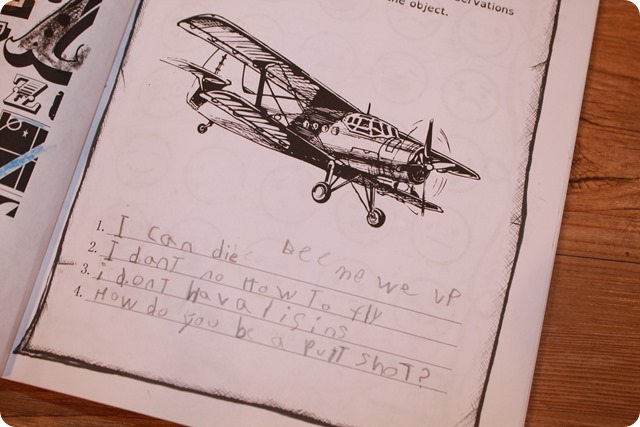 servations
the object.
1. I can die we up
2. I dont no How To fly
3. i dont hava lisins
4. How do you be a shoT?